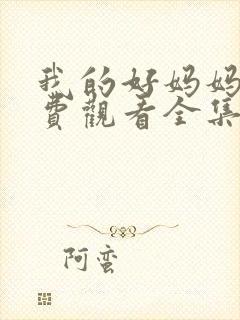 我的好妈妈
费觀看全集
阿蛮